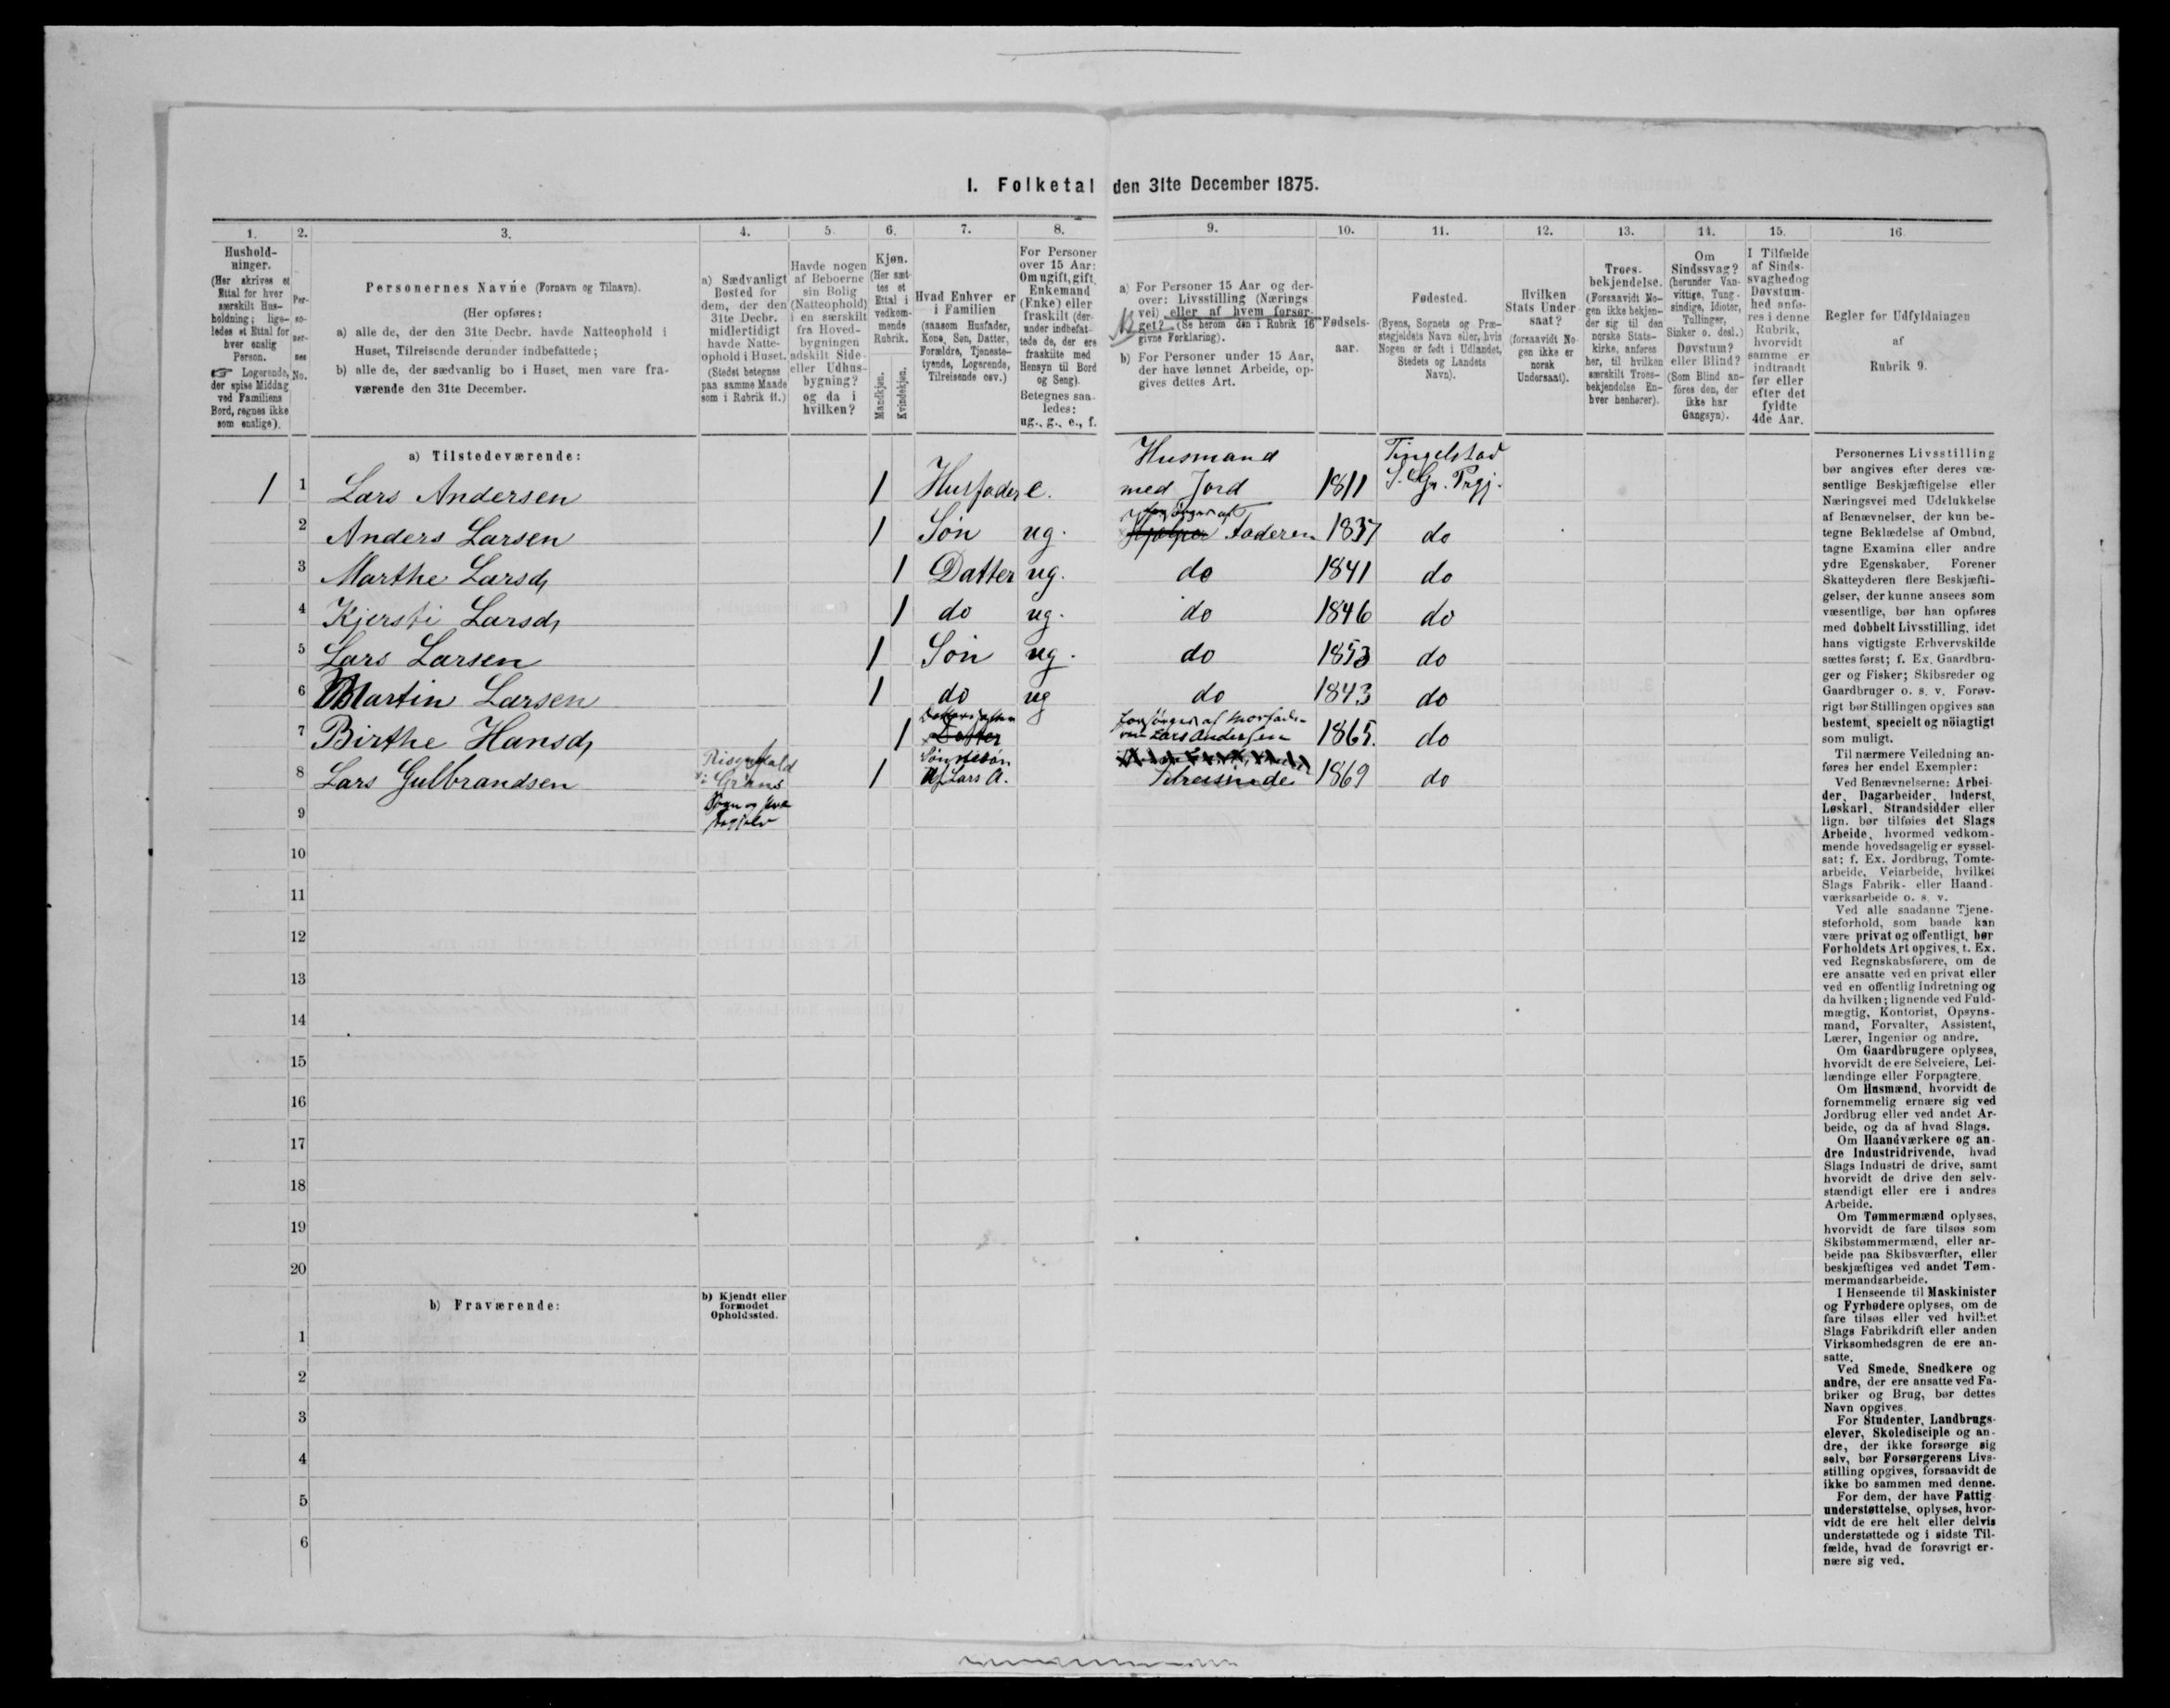 I. Folketal den 31te December 1875.
1.
Hushold-
ninger.
(Her skrives et
Ettal for hver
særskilt Hus-
holdning; lige-
ledes et Ettal for
hver enslig
Person.
☞ Logerende,
der spise Middag
ved Familiens
Bord, regnes ikke
som enslige).
2.
Per-
so-
ner-
nes
No.
3.
Personernes Navne (Fornavn og Tilnavn).
(Her opføres:
a) alle de, der den 31te Decbr. havde Natteophold i
Huset, Tilreisende derunder indbefattede;
b) alle de, der sædvanlig bo i Huset, men vare fra-
værende den 31te December.
4.
a) Sædvanligt
Bosted for
dem, der den
31te Decbr.
midlertidigt
havde Natte-
ophold i Huset.
(Stedet betegnes
paa samme Maade
som i Rubrik 11.)
5.
Havde nogen
af Beboerne
sin Bolig
(Natteophold)
i en særskilt
fra Hoved-
bygningen
adskilt Side-
eller Udhus-
bygning?
og da i
hvilken?
6.
Kjøn.
(Her sæt-
tes et
Ettal i
vedkom-
mende
Rubrik.
Mandkjøn.
Kvindekjøn.
7.
Hvad Enhver er
i Familien
(saasom Husfader,
Kone, Søn, Datter,
Forældre, Tjeneste-
tyende, Logerende,
Tilreisende osv.)
8.
For Personer
over 15 Aar:
Om ugift, gift,
Enkemand
(Enke) eller
fraskilt (der-
under indbefat-
tede de, der ere
fraskilte med
Hensyn til Bord
og Seng).
Betegnes saa-
ledes:
ug., g., e., f.
9.
a) For Personer 15 Aar og der-
over: Livsstilling (Nærings
vei) eller af hvem forsør-
get? (Se herom den i Rubrik 16
givne Forklaring).
b) For Personer under 15 Aar,
der have lønnet Arbeide, op-
gives dettes Art.
10.
Fødsels-
aar.
11.
Fødested.
(Byens, Sognets og Præ-
stegjeldets Navn eller, hvis
Nogen er født i Udlandet,
Stedets og Landets
Navn).
12.
Hvilken
Stats Under-
saat?
(forsaavidt No-
gen ikke er
norsk
Undersaat).
13.
Troes-
bekjendelse.
(Forsaavidt No-
gen ikke bekjen-
der sig til den
norske Stats-
kirke, anføres
her, til hvilken
særskilt Troes-
bekjendelse En-
hver henhører).
14.
Om
Sindssvag?
(herunder Van-
vittige, Tung-
sindige, Idioter,
Tullinger,
Sinker o. desl.)
Døvstum?
eller Blind?
(Som Blind an-
føres den, der
ikke har
Gangsyn).
15.
I Tilfælde
af Sinds-
svaghed og
Døvstum-
hed anfø-
res i denne
Rubrik,
hvorvidt
samme er
indtraadt
før eller
efter det
fyldte
4de Aar.
16.
Regler for Udfyldningen
af
Rubrik 9.
a) Tilstedeværende:
Husmand Tingelstad
1 1 Lars Andersen 1 Husfader e. med Jord 1811 S. Gr. Prgj.
forsørges af
2 Anders Larsen 1 Søn ug. Hjælper Faderen 1837 do
3 Marthe Larsd. 1 Datter ug. do 1841 do
4 Kjersti Larsd. 1 do ug. do 1846 do
5 Lars Larsen 1 Søn ug. do 1853 do
6 Martin Larsen 1 do ug do 1843 do
forsørges af Morfade-
7 Birthe Hansd. 1 Datter ren Lars Andersen 1865. do
Sønnesøn
8 Lars Gulbrandsen i Grans 1 af Lars A. 1869 do
Sogn og
9
10
11
12
13
14
15
16
17
18
19
20
b) Fraværende:
b) Kjendt eller
formodet
Opholdssted.
1
2
3
4
5
6
Personernes Livsstilling
bør angives efter deres væ-
sentlige Beskjæftigelse eller
Næringsvei med Udelukkelse
af Benævnelser, der kun be-
tegne Beklædelse af Ombud,
tagne Examina eller andre
ydre Egenskaber. Forener
Skatteyderen flere Beskjæfti-
gelser, der kunne ansees som
væsentlige, bør han opføres
med dobbelt Livsstilling, idet
hans vigtigste Erhvervskilde
sættes først; f. Ex. Gaardbru-
ger og Fisker; Skibsreder og
Gaardbruger o. s. v. Forøv-
rigt bør Stillingen opgives saa
bestemt, specielt og nöiagtigt
som muligt.
Til nærmere Veiledning an-
føres her endel Exempler:
Ved Benævnelserne: Arbei-
der, Dagarbeider, Inderst,
Løskarl, Strandsidder eller
lign. bør tilføies det Slags
Arbeide, hvormed vedkom-
mende hovedsagelig er syssel-
sat; f. Ex. Jordbrug, Tomte-
arbeide, Veiarbeide, hvilket
Slags Fabrik- eller Haand-
værksarbeide o. s. v.
Ved alle saadanne Tjene-
steforhold, som baade kan
være privat og offentligt, bør
Forholdets Art opgives, t. Ex.
ved Regnskabsførere, om de
ere ansatte ved en privat eller
ved en offentlig Indretning og
da hvilken; lignende ved Fuld-
mægtig, Kontorist, Opsyns-
mand, Forvalter, Assistent,
Lærer, Ingeniør og andre.
Om Gaardbrugere oplyses,
hvorvidt de ere Selveiere, Lei-
lændinge eller Forpagtere.
Om Husmænd, hvorvidt de
fornemmelig ernære sig ved
Jordbrug eller ved andet Ar-
beide, og da af hvad Slags.
Om Haandværkere og an-
dre Industridrivende, hvad
Slags Industri de drive, samt
hvorvidt de drive den selv-
stændigt eller ere i andres
Arbeide.
Om Tømmermænd oplyses,
hvorvidt de fare tilsøs som
Skibstømmermænd, eller ar-
beide paa Skibsværfter, eller
beskjæftiges ved andet Tøm-
mermandsarbeide.
I Henseende til Maskinister
og Fyrbødere oplyses, om de
fare tilsøs eller ved hvilket
Slags Fabrikdrift eller anden
Virksomhedsgren de ere an-
satte.
Ved Smede, Snedkere og
andre, der ere ansatte ved Fa-
briker og Brug, bør dettes
Navn opgives.
For Studenter, Landbrugs-
elever, Skoledisciple og an-
dre, der ikke forsørge sig
selv, bør Forsørgerens Livs-
stilling opgives, forsaavidt de
ikke bo sammen med denne.
For dem, der have Fattig-
understøttelse, oplyses, hvor-
vidt de ere helt eller delvis
understøttede og i sidste Til-
fælde, hvad de forøvrigt er-
nære sig ved.